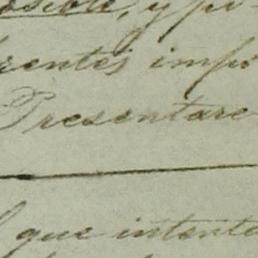 osible, y po-
rentes impo
Presentare
que intenta